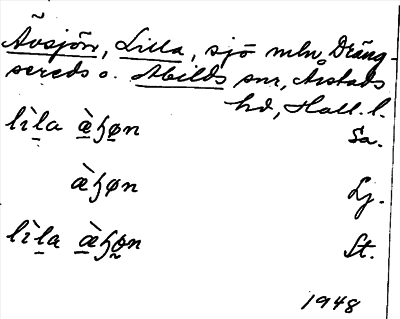 Ävsjön, Lilla, sjö mln Dräng-
sereds o. Abilds snr, Årstads
hd, Hall. l.
lìla æ̀ɧøn Sa.
æ̀ɧøn Lj.
lìla æ̀ɧøn St.
1948